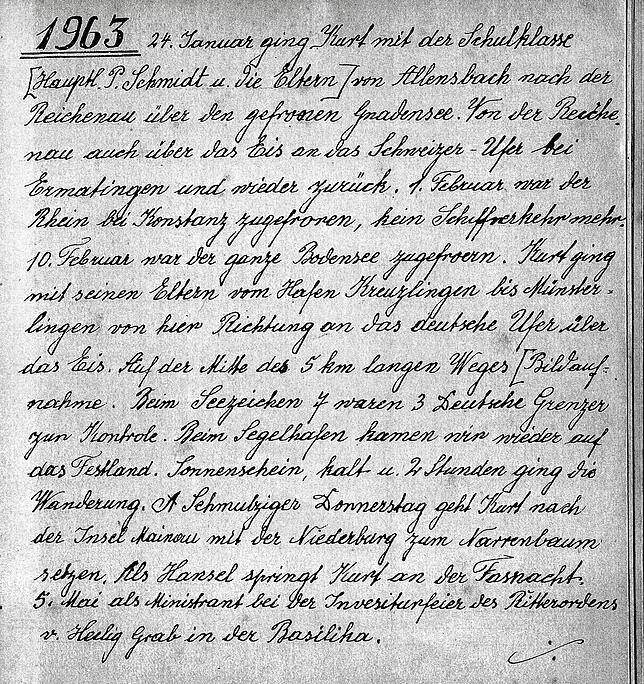 1963 24. Januar ging Kurt mit der Schulklasse
[Hauptl. P. Schmidt u. die Eltern] von Allensbach nach der
Reichenau über den gefrooien Gnadensee. Von der Reiche-
nau auch über das Eis an das Schweizer-Ufer bei
Ermatingen und wieder zurück. 1. Februar war der
Rhein bei Konstanz zugefroren, kein Schiffverkehr mehr.
10. Februar war der ganze Bodensee zugefroern. Kurt ging
mit seinen Eltern vom Hafen Kreuzlingen bis Münster-
lingen von hier Richtung an das deutsche Ufer über
das Eis. Auf der Mitte des 5 km langen Weges [Bildauf-
nahme. Beim Seezeichen 7 waren 3 Deutsche Grenzer
zur Kontrole. Beim Segelhafen kamen wir wieder auf
das Festland. Sonnenschein, kalt u. 2 Stunden ging die
Wanderung. A Schmutziger Donnerstag geht Kurt nach
der Insel Mainau mit der Niederburg zum Narrenbaum
setzen. Als Hansel springt Kurt an der Fasnacht.
5. Mai als Ministrant bei der Invesiturfeier des Ritterordens
v. Heilig Grab in der Basilika.